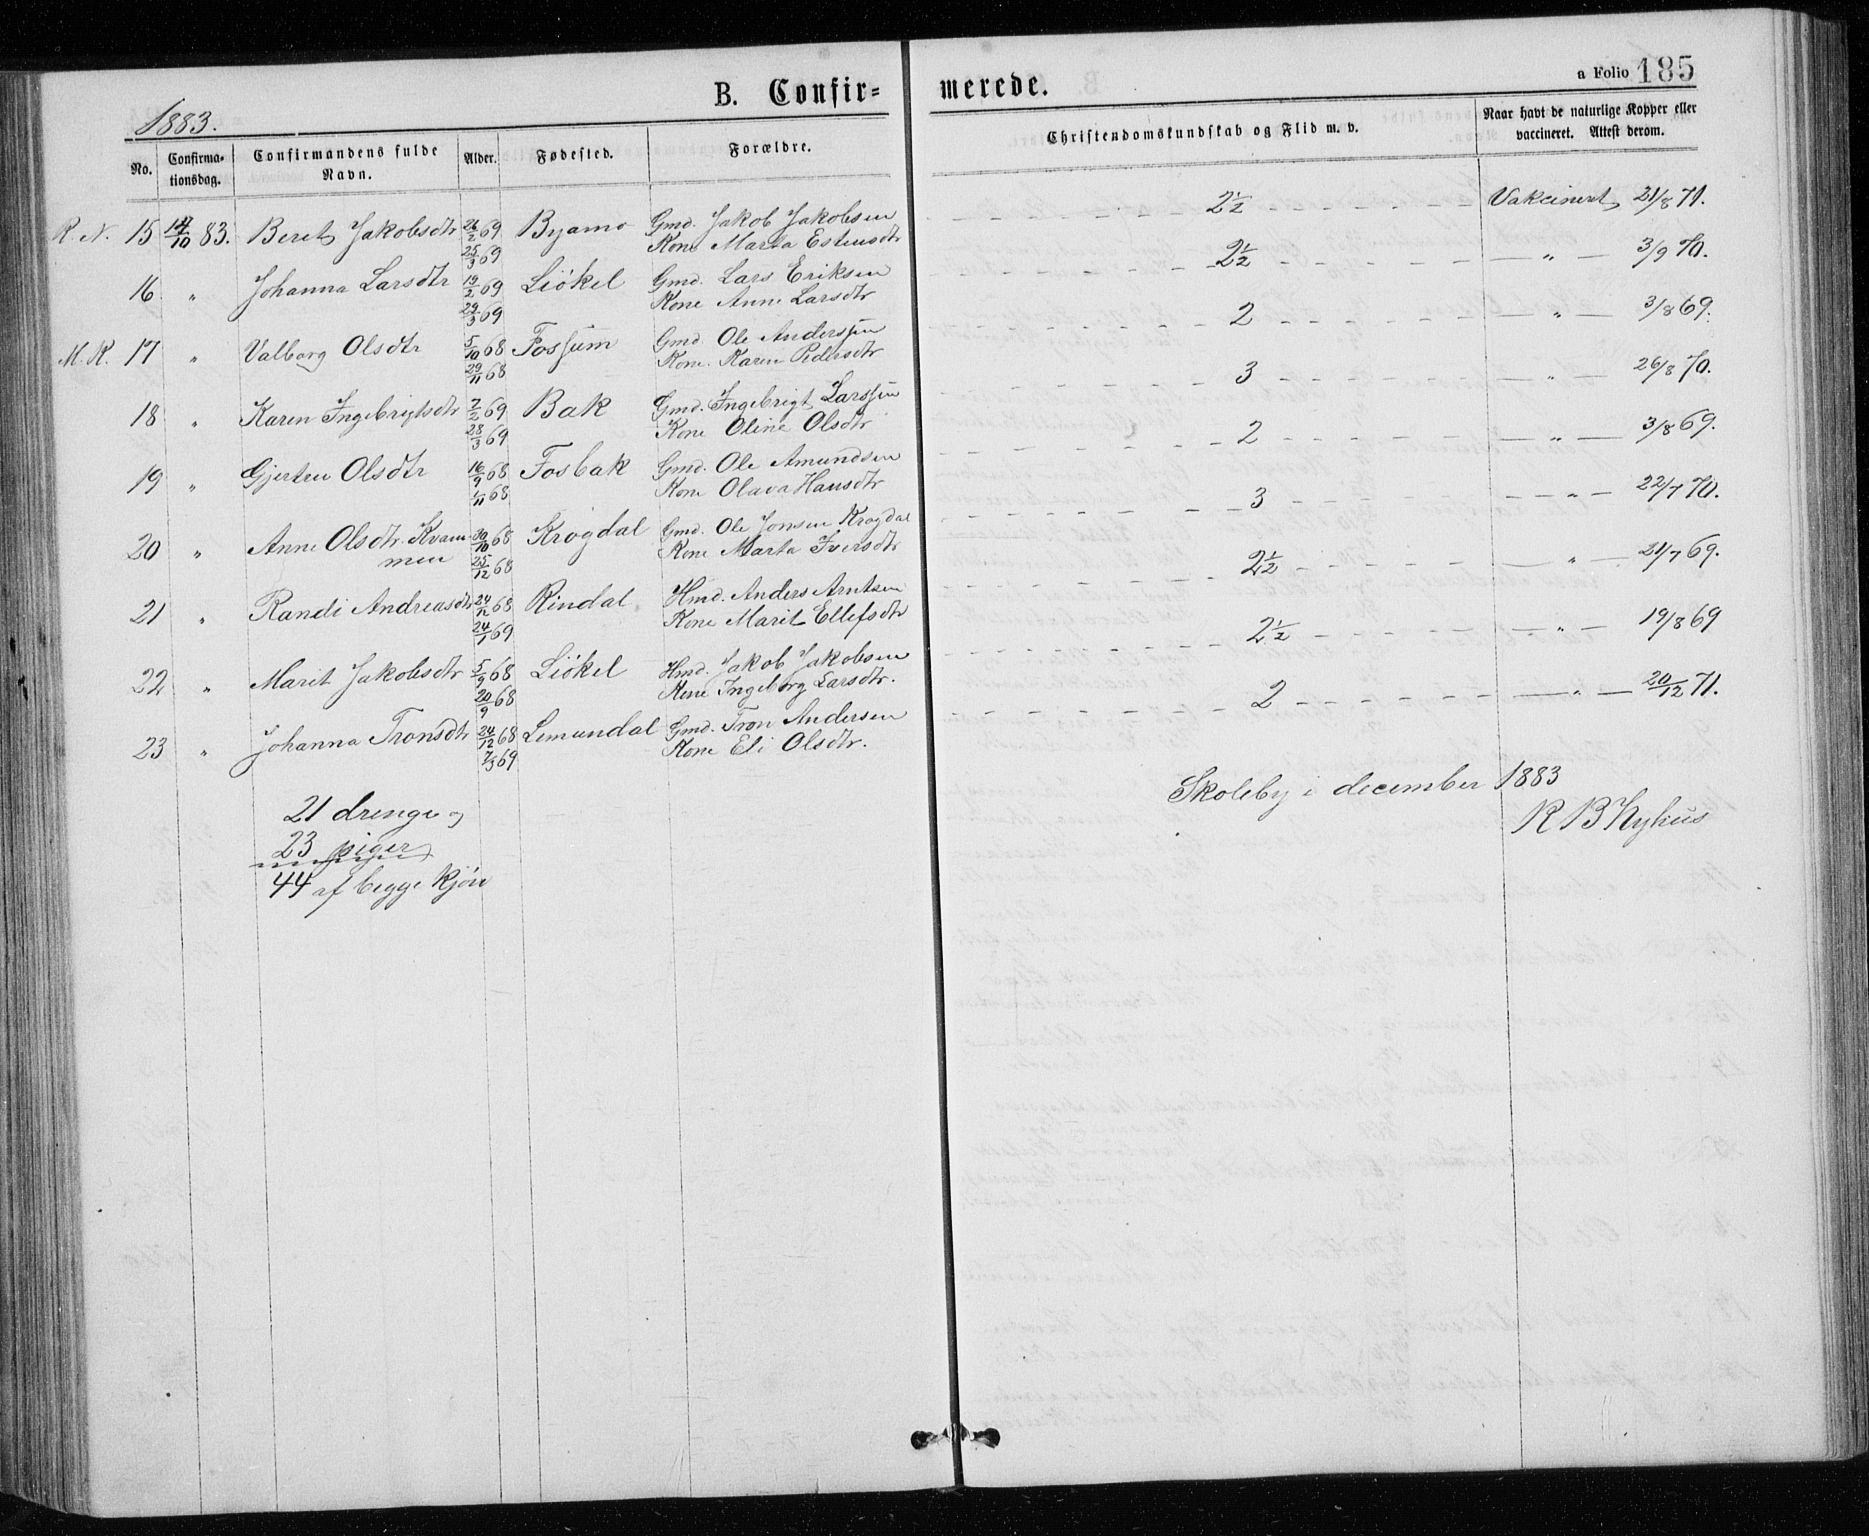 B. Confir= merede.
a Folio 185
1883.
No.
Confirma-
tionsdag.
Confirmandens fulde
Navn.
Alder.
Fødested.
Forældre.
Christendomskundskab og Flid m. v.
Naar havt de naturlige Kopper eller
vaccineret. Attest derom.
R. N. 15 14/10 83. Beret Jakobsdtr 26/2 69 Byamo Gmd. Jakob Jakobsen 2½ Vakcinert 21/8 71.
25/3 69 Kone Marta Estensdtr
16 " Johanna Larsdtr 19/2 69 Liökel Gmd. Lars Eriksen 2½ " 3/9 70.
29/3 69 Kone Anne Larsdtr
M. K. 17 " Valborg Olsdtr 5/10 68 Fossum Gmd Ole Anderssen 2 " 3/8 69.
29/11 68 Kone. Karen Pedersdtr
18 " Karen Ingebrigtsdtr 7/2 69 Bak Gmd. Ingebrigt Larssen 3 " 26/8 70.
28/3 69 Kone Oline Olsdtr
19 " Gjertru Olsdtr 16/9 68 Fosbak Gmd. Ole Amundsen 2 " 3/8 69.
1/11 68 Kone Olava Hansdtr
20 " Anne Olsdtr. Kvam- 30/10 68 Krogdal Gmd. Ole Jonsen Krogdal 3 " 22/7 70.
men 25/12 68 Kone Marta Iversdtr
21 " Randi Andreasdtr 24/12 68 Rindal Hmd. Anders Arntsen 2½ " 21/7 69.
24/1 69 Kone Marit Ellefsdtr
22 " Marit Jakobsdtr 5/9 68 Liökel Hmd. Jakob Jakobsen 2½ " 19/8 69
20/9 68 Kone Ingeborg Larsdtr.
23 " Johanna Tronsdtr 24/12 68 Lemundal Gmd. Tron Andersen 2 " 20/12 71.
7/3 69 Kone Eli Olsdtr.
21 drenge og
23 piger
44 af begge kjön
Skoleby i december 1883
R B Nyhus